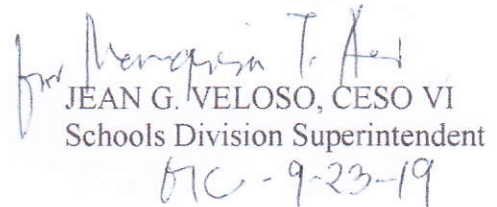 for
JEAN G. VELOSO, CESO VI
Schools Division Superintendent
OIC - 9-23-19